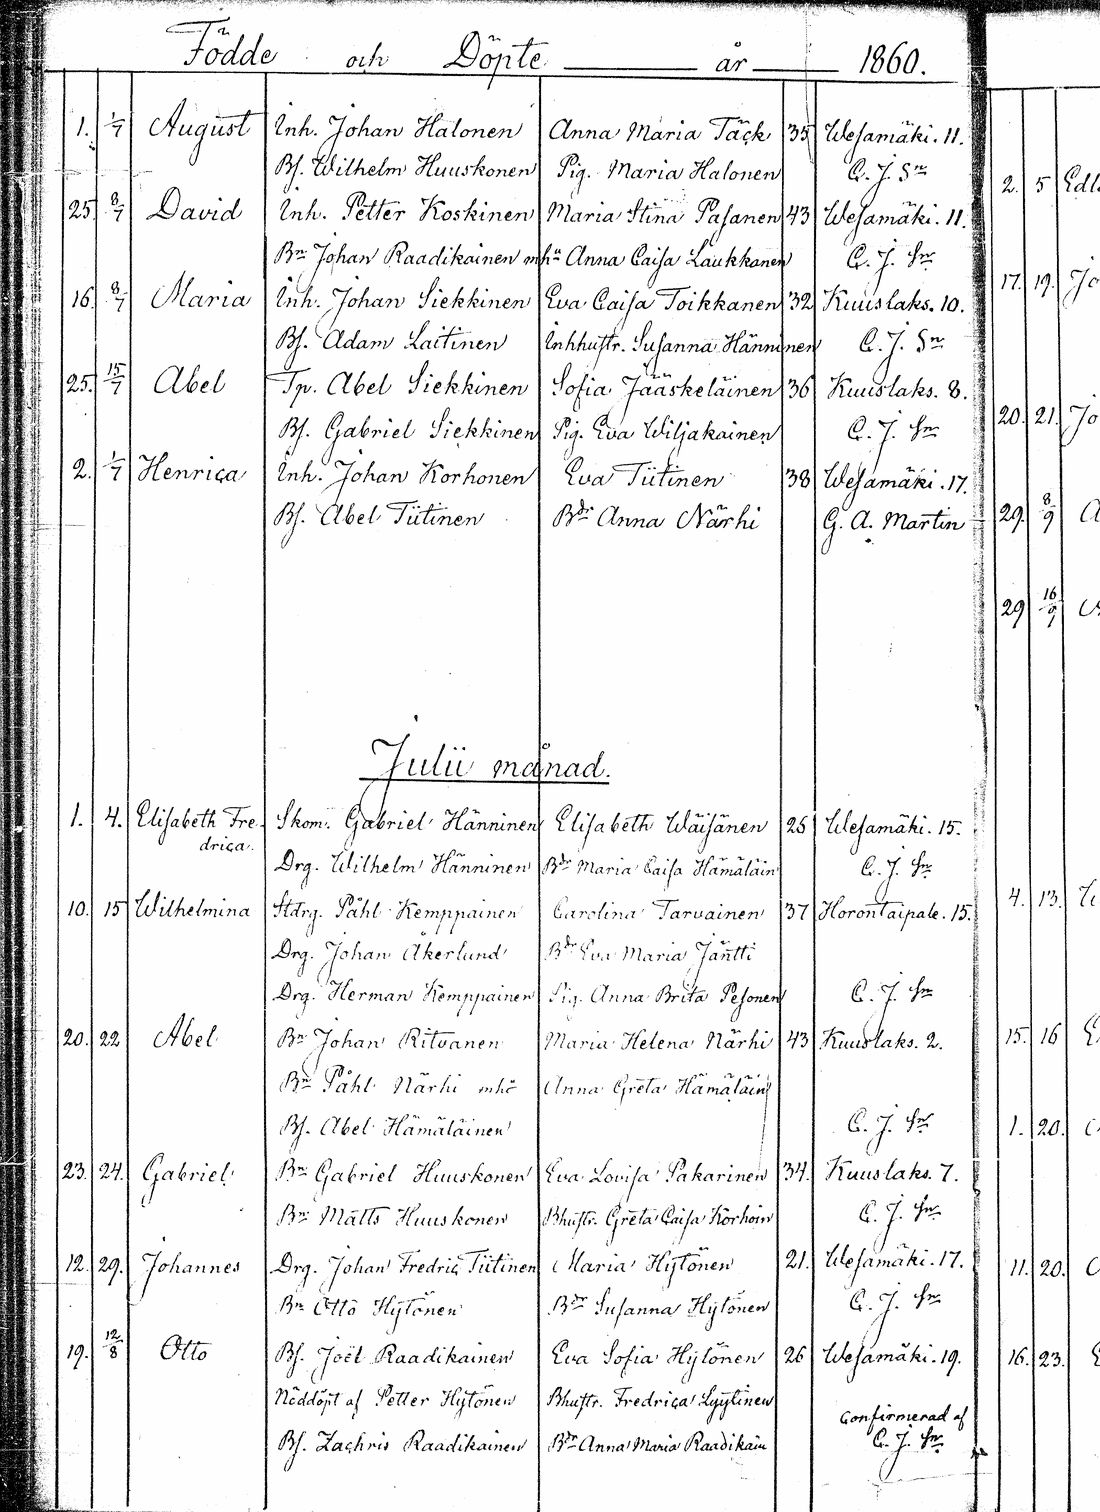 Födde och Döpte år 1860.
1. 1/7 August Inh. Johan Halonen Anna Maria Täck 35 Wesamäki. 11.
Bs. Wilhelm Huuskonen Pig. Maria Halonen C. J. Sn
25 8/7 David Inh. Petter Koskinen Maria Stina Pasanen 43 Wesamäki. 11.
Bn Johan Raadikainen mhu Anna Caisa Laukkanen C. J. Sn
16. 8/7 Maria Inh. Johan Siekkinen Eva Caisa Toikkanen 32 Kuuslaks. 10.
Bs. Adam Laitinen Inhhustr. Susanna Hänninen C. J. Sn
25. 15/7 Abel Tp. Abel Siekkinen Sofia Jääskeläinen 36 Kuuslaks. 8.
Bs. Gabriel Siekkinen Pig. Eva Wiljakainen C. J. Sn
2. 1/7 Henrica Inh. Johan Korhonen Eva Tiitinen 38 Wesamäki. 17.
Bs. Abel Tiitinen Bdr Anna Närhi G. A. Martin
Julii månad.
1. 4. Elisabeth Fre- Skom. Gabriel Hänninen Elisabeth Wäisänen 25 Wesamäki. 15.
drica.
Drg. Wilhelm Hänninen Bdr Maria Caisa Hämäläin C. J. Sn
10. 15 Wilhelmina Stdrg. Påhl Kemppainen Carolina Tarvainen 37 Horontaipale. 15.
Drg. Johan Åkerlund Bdr Eva Maria Jäntti
Drg. Herman Kemppainen Pig. Anna Brita Pesonen C. J. Sn
20. 22 Abel Bn Johan Ritvanen Maria Helena Närhi 43 Kuuslaks. 2.
Bn Påhl Närhi mhu Anna Greta Hämäläin
Bs. Abel Hämäläinen C. J. Sn
23. 24. Gabriel Bn Gabriel Huuskonen Eva Lovisa Pakarinen 34. Kuuslaks. 7.
Bn Matts Huuskonen Bhustr. Greta Caisa Korhoin C. J. Sn
12. 29. Johannes Drg. Johan Fredric Tiitinen Maria Hytönen 21. Wesamäki. 17.
Bn Otto Hytönen Bdr Susanna Hytönen C. J. Sn
19. 12/8 Otto Bs. Joel Raadikainen Eva Sofia Hytönen 26 Wesamäki. 19.
Nöddöpt af Petter Hytönen Bhustr. Fredrica Lyytinen Confirmerad af
Bs. Zachris Raadikainen Bdr Anna Maria Raadikain C. J. Sn
2. 5 Edla
17. 19. Jo
20. 21. Jo
29. 8/9 A
29 16/9
4. 13.
15. 16 E
1. 20.
11. 20.
16. 23.